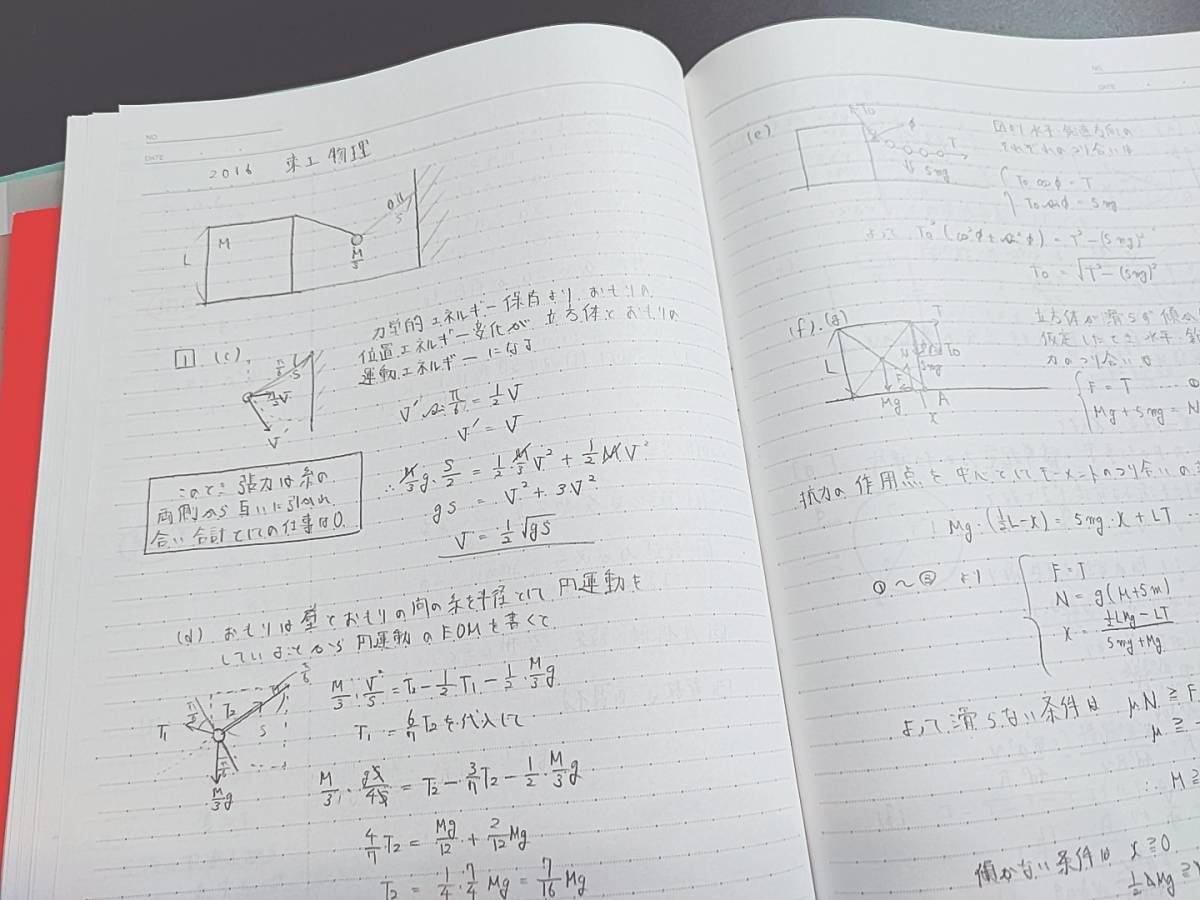 NO.
DATE
2016 東工物理
M
L
M/3
S
1 (c)
力学的エネルギー保存より、おもりの
位置エネルギー変化が立方体とおもりの
運動エネルギーになる
π/6
S
V
V' sin π/6 = 1/2 V
V' = V
∴ M/3 g・S/2 = 1/2・M/3 V² + 1/2 M V²
gS = V² + 3V²
V = 1/2 √gS
このとき張力は糸の
両側から互いに引かれ
合い合計としての仕事は0.
(d) おもりは壁とおもりの間の糸を半径として円運動を
していることから円運動のEOMを書くと
T₁
T₂
S
M/3 g
M/3・V²/S = T₂ - 1/2 T₁ - 1/2・M/3 g
T₁ = 6/7 T₂ を代入して
M/3・gS/4S = T₂ - 3/7 T₂ - 1/2・M/3 g
4/7 T₂ = Mg/12 + 2/12 Mg
T₂ = 1/4・7/4 Mg = 7/16 Mg
NO.
DATE
(e)
T₀
φ
T
5mg
図より水平・鉛直方向の
それぞれのつり合いは
T₀ cos φ = T
T₀ sin φ = 5mg
よって T₀² (cos²φ + sin²φ) = T² - (5mg)²
T₀ = √T² - (5mg)²
(f).(g)
L
T
N
T₀
5mg
F
Mg
A
x
立方体が滑らず傾か
仮定したとき水平・鉛
力のつり合いは
F = T ①
Mg + 5mg = N
抗力の作用点を中心としてモーメントのつり合いの
Mg・(1/2 L - x) = 5mg・x + LT
①～③より
F = T
N = g(M+5m)
x = 1/2 LMg - LT / 5mg + Mg
よって滑らない条件は μN ≧ F
μ ≧
∴ M ≧
傾かない条件は x ≧ 0